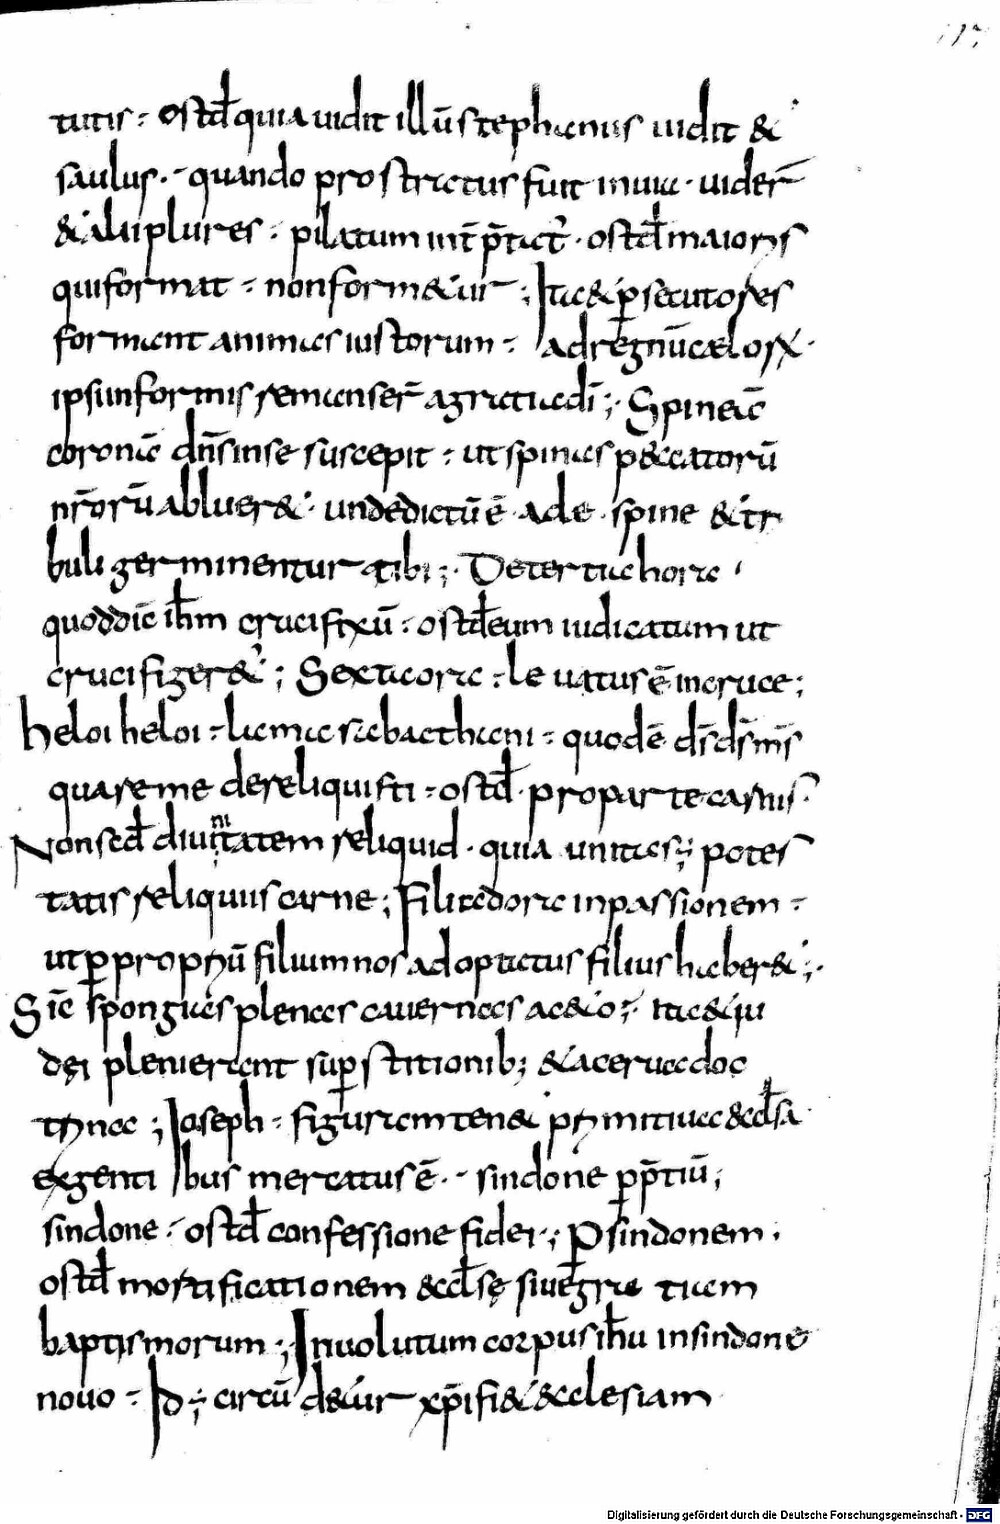 117
tutis ÷ ostđ quia uidit illū stephanus uidit &
saulus · quando prostractus fuit in uia · uider̄
& alii plures · pilatum int̄ p̄tat̄ · ostđ maioris
qui format ÷ non form&ur ; Ita & p̱secutores
formant animas iustorum ÷ ad regnū caeloꝝ ·
ipsi informis remanser̄ a gratia dī ; Spineā
coronā dn̄s in se suscepit ÷ ut spinas peccatorū
nr̄orū abluer& · unde dictū ē adę · spine & tr
buli germinentur tibi ; De tertia hora
quod dīc ih̄m crucifixū ÷ ostđ eum iudicatum ut
crucifiger& ; Sexta ora ÷ leuatus ē in cruce ;
heloi heloi ÷ lama sabacthani ÷ quod ē d̄s d̄s m̄s
quare me dereliquisti ÷ ostđ · pro parte carnis ·
Non sed diuinitatem reliquid · quia unitas ; potes
tatis reliquiis carne ; Filii adoria in passionem ÷
ut p̱ propriū filium nos adoptatus filius haber& ;
Sīc spongias plenas cauernas ac&o ; Ita & iu
dęi plenierant sup̱stitionib; & acerua doc
trina ; Ioseph ÷ figuram ten& primitiua & ecl̄sa
ex gentibus mercatus ē · sindone p̱ p̄tiū ;
sindone ÷ ostđ confessione fidei ; P̱ sindonem ·
ostđ mortificationem & ecl̄sę siue gratiam
baptismorum ; Inuolutum corpus ih̄u in sindone
nouo ÷ Id ÷ circūd&ur xp̄i fi& ecclesiam
Digitalisierung gefördert durch die Deutsche Forschungsgemeinschaft - DFG